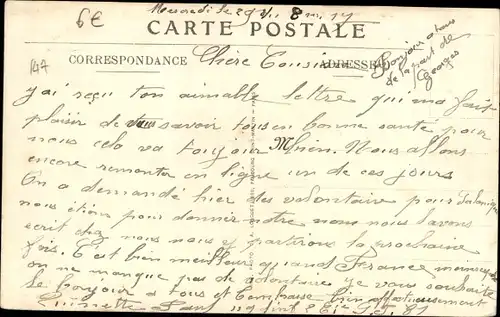 6€
Mercredi le
CARTE POSTALE
147
CORRESPONDANCE Chère Cousine ADRESSE
Bonjour a tous
de la part de
Georges
j'ai reçu ton aimable lettre qui ma fait
plaisir de vous savoir tous en bonne santé pour
nous cela va toujour bien. Nous allons
encore remonter en ligne un de ces jours
On a demandé hier des volontaire pour
nous étions pour donner notre nom nous lavons
écrit chez nous nous y partirons la prochaine
fois. C'est bien meilleur quand France
on ne manque pas de volontaire je vous souhaite
le bonjour a tous et t'embrasse bien affectueusement
Paul